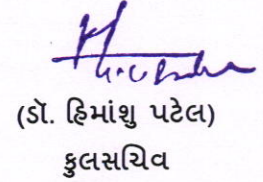 (ડૉ. હિમાંશુ પટેલ)
કુલસચિવ